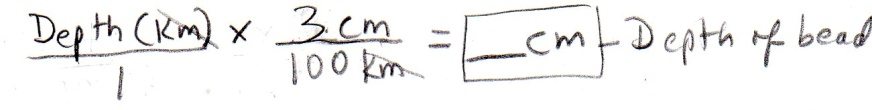 Depth (km)/1 × 3 cm/100 km = __ cm - Depth of bead